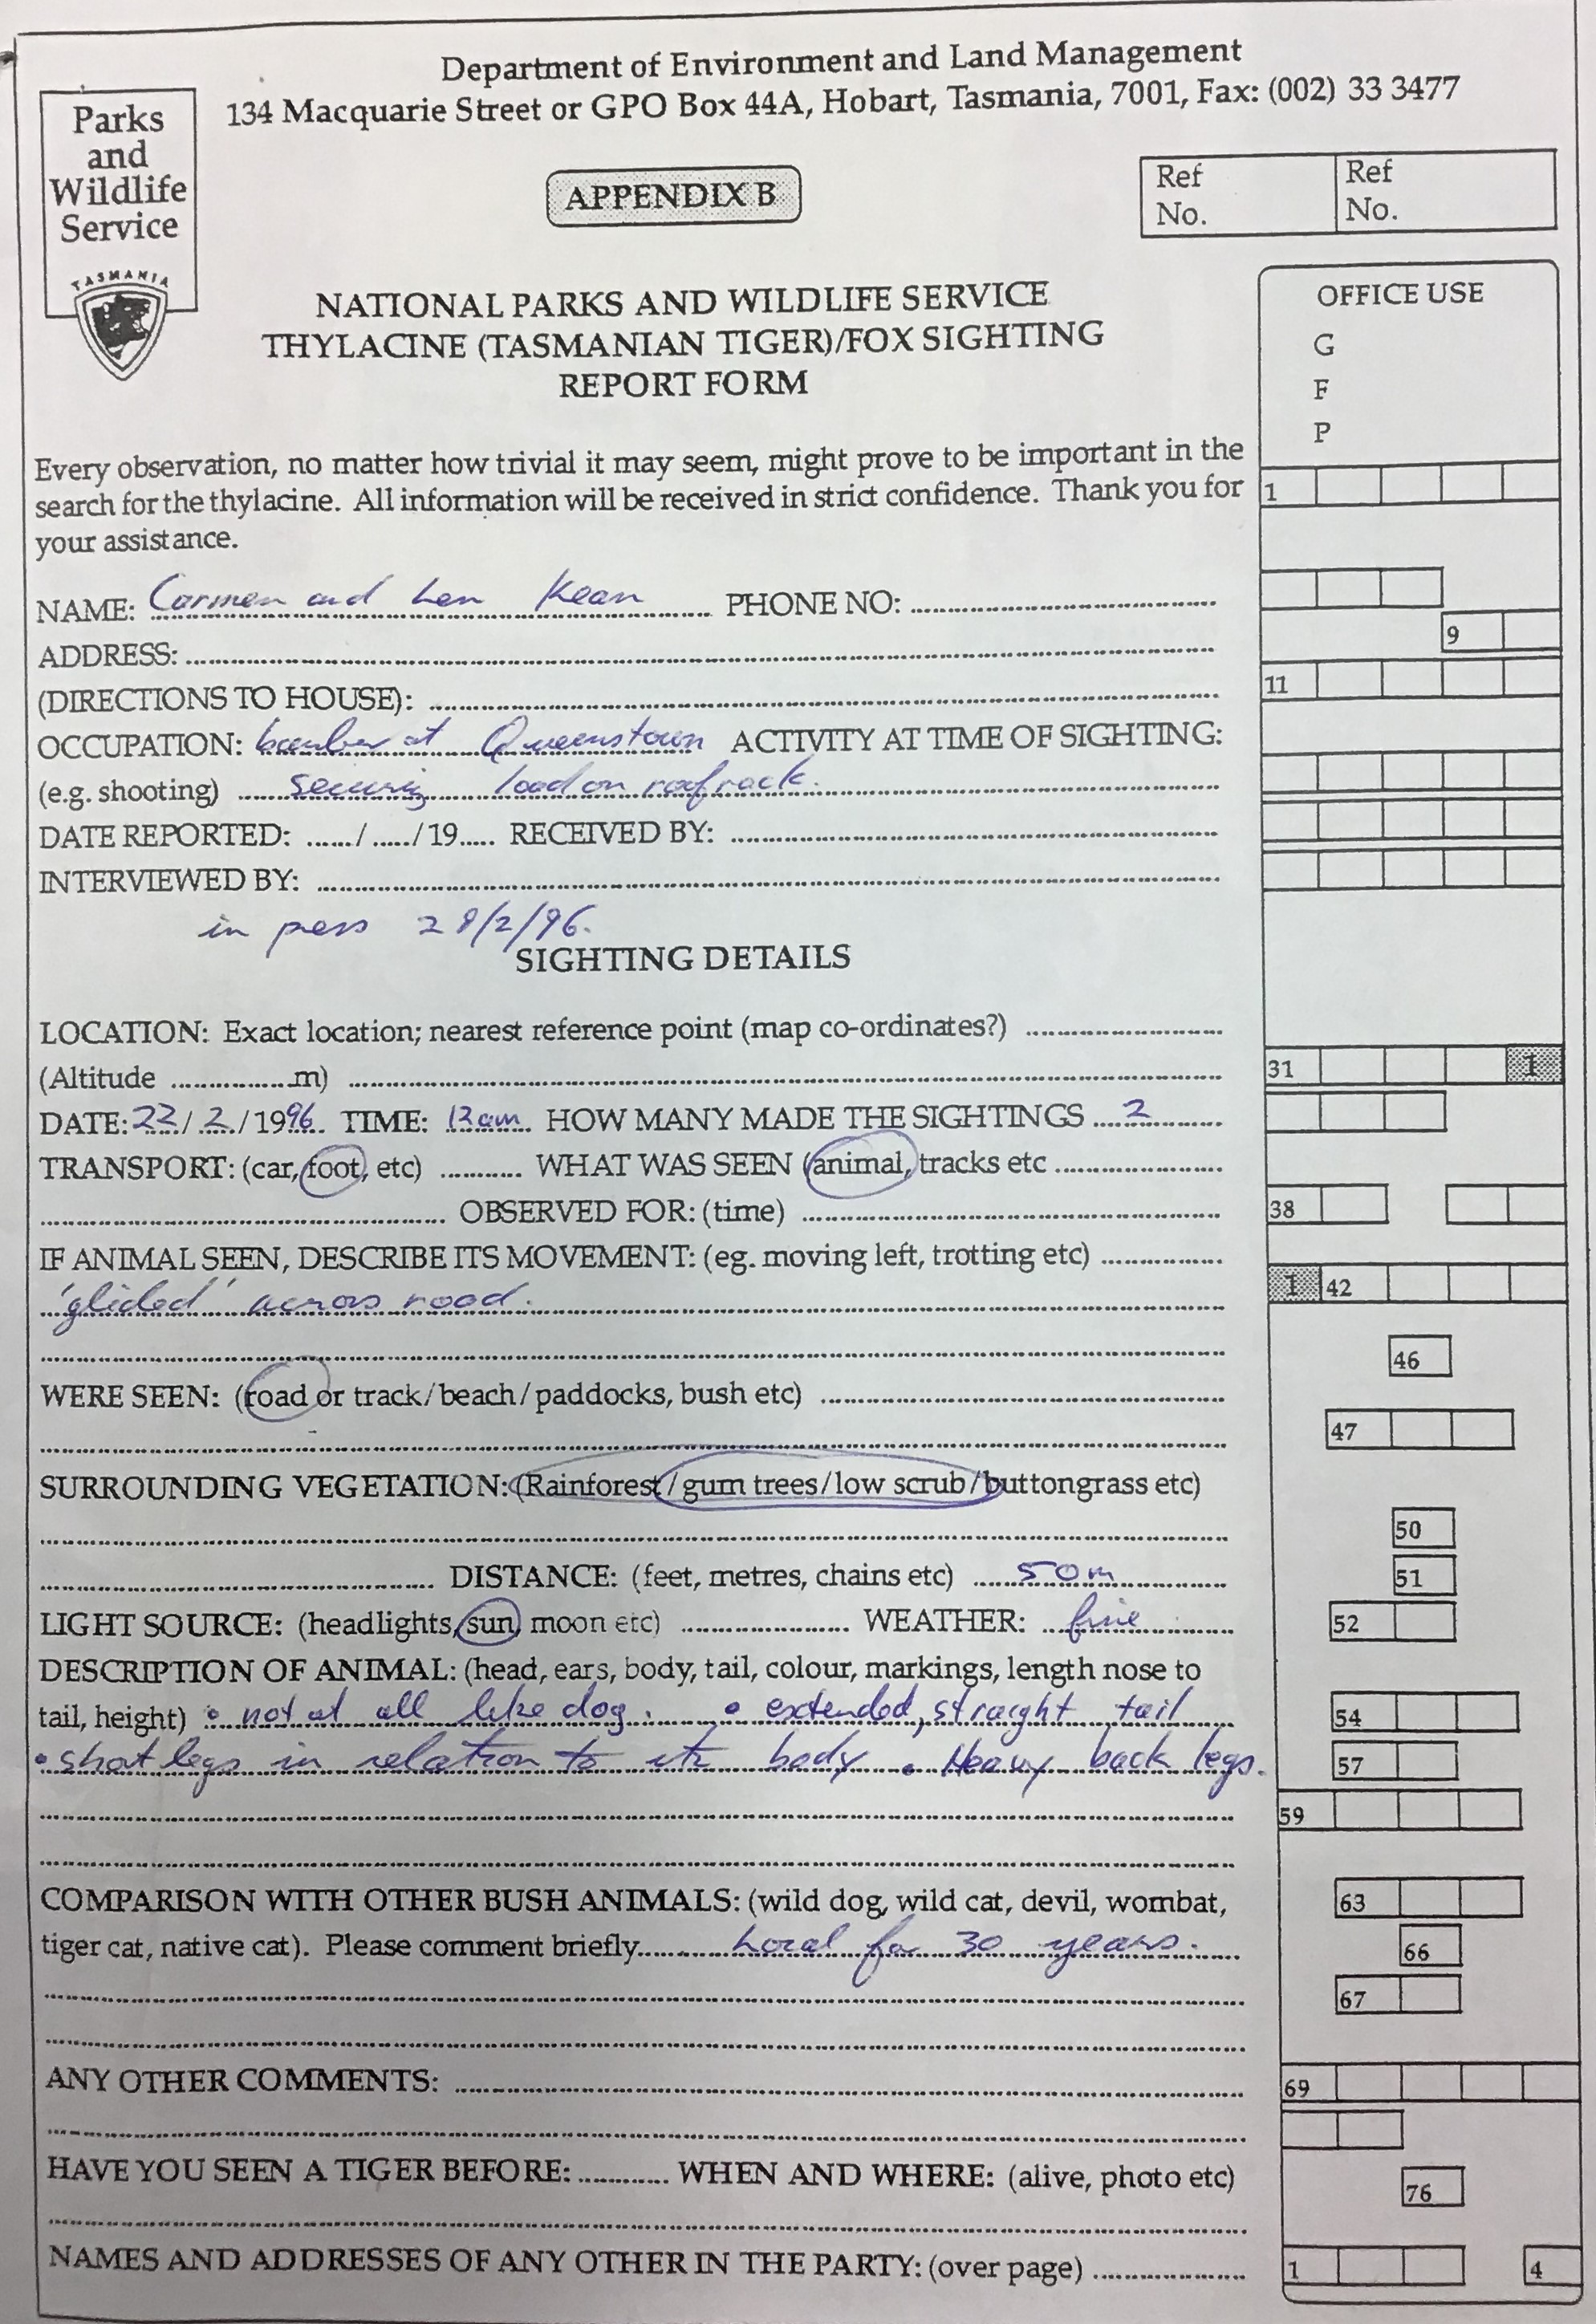 Department of Environment and Land Management
134 Macquarie Street or GPO Box 44A, Hobart, Tasmania, 7001, Fax: (002) 33 3477
Parks
and
Wildlife
Service
TASMANIA
APPENDIX B
Ref No.
Ref No.
NATIONAL PARKS AND WILDLIFE SERVICE
THYLACINE (TASMANIAN TIGER)/FOX SIGHTING
REPORT FORM
OFFICE USE
G
F
P
Every observation, no matter how trivial it may seem, might prove to be important in the
search for the thylacine. All information will be received in strict confidence. Thank you for
your assistance.
1
NAME: Carmen and Len Kean PHONE NO:
9
ADDRESS:
(DIRECTIONS TO HOUSE):
11
OCCUPATION: at Queenstown ACTIVITY AT TIME OF SIGHTING:
(e.g. shooting) securing load on roofrack.
DATE REPORTED: ....../ ...../ 19..... RECEIVED BY:
INTERVIEWED BY:
in press 28/2/96.
SIGHTING DETAILS
LOCATION: Exact location; nearest reference point (map co-ordinates?)
(Altitude ...............m)
31 1
DATE: 22/ 2/ 1996 TIME: HOW MANY MADE THE SIGHTINGS 2
TRANSPORT: (car, foot, etc) ........... WHAT WAS SEEN (animal, tracks etc
OBSERVED FOR: (time)
38
IF ANIMAL SEEN, DESCRIBE ITS MOVEMENT: (eg. moving left, trotting etc)
'glided' across road.
1 42
46
WERE SEEN: (road or track/beach/paddocks, bush etc)
47
SURROUNDING VEGETATION: (Rainforest/gum trees/low scrub/buttongrass etc)
50
DISTANCE: (feet, metres, chains etc) 50m
51
LIGHT SOURCE: (headlights, sun, moon etc) WEATHER: fine
52
DESCRIPTION OF ANIMAL: (head, ears, body, tail, colour, markings, length nose to
tail, height) • not at all like dog. • extended, straight tail
54
• short legs in relation to its body • Heavy back legs.
57
59
COMPARISON WITH OTHER BUSH ANIMALS: (wild dog, wild cat, devil, wombat,
63
tiger cat, native cat). Please comment briefly Local for 30 years.
66
67
ANY OTHER COMMENTS:
69
HAVE YOU SEEN A TIGER BEFORE: ........... WHEN AND WHERE: (alive, photo etc)
76
NAMES AND ADDRESSES OF ANY OTHER IN THE PARTY: (over page)
1 4